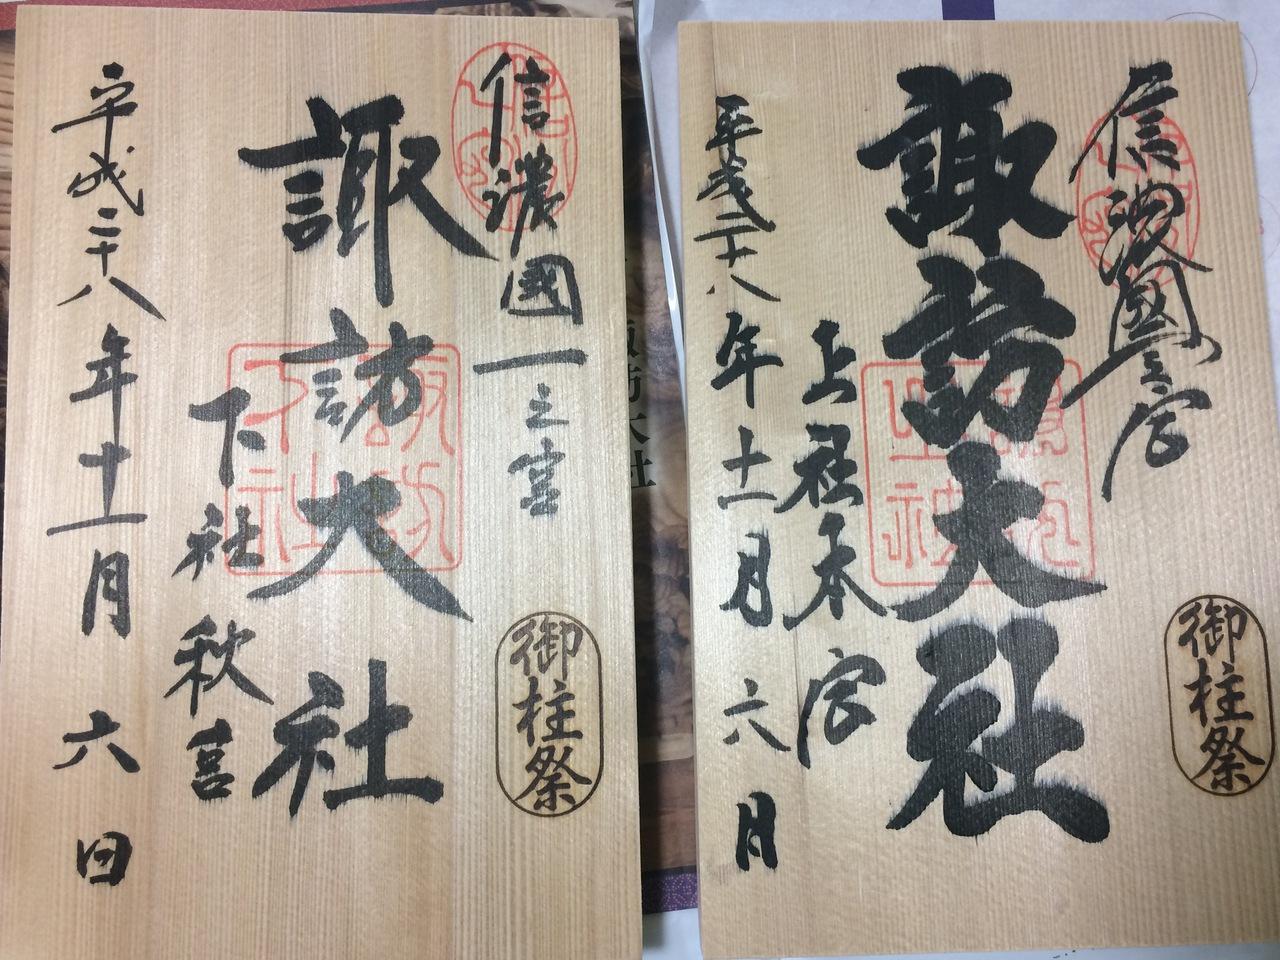 信濃國一之宮
御柱祭
諏訪大社
上社本宮
平成二十八年十一月六日
信濃國一之宮
御柱祭
諏訪大社
下社秋宮
平成二十八年十一月六日